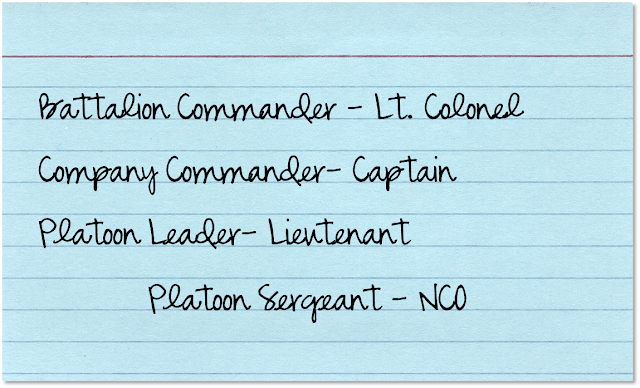 Battalion Commander - Lt. Colonel
Company Commander- Captain
Platoon Leader- Lieutenant
Platoon Sergeant - NCO